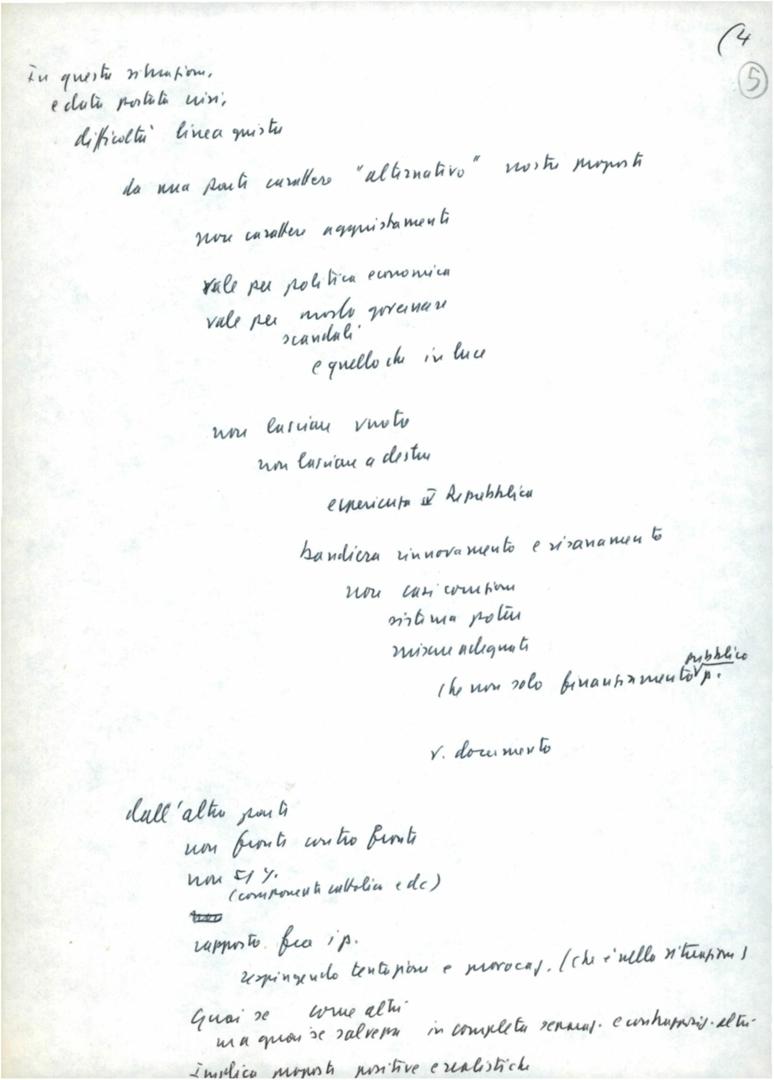 (4
5
In questa situazione,
e data portata crisi,
difficoltà linea giusta
da una parte carattere "alternativo" nostre proposte
non carattere aggiustamenti
vale per politica economica
vale per modo governare
scandali
e quello che in luce
non lasciare vuoto
non lasciare a destra
esperienza IV Repubblica
bandiera rinnovamento e risanamento
non casi corruzione
sistema potere
misure adeguate
che non solo finanziamento pubblico p.
v. documento
dall'altra parte
non fronte contro fronte
non 51%.
(componente cattolica e dc)
rapporto fra i p.
respingendo tentazione e provocaz. (che è nella situazione)
Guai se come altri
ma guai se salvezza in completa e contrappos. altri
implica proposte positive e realistiche